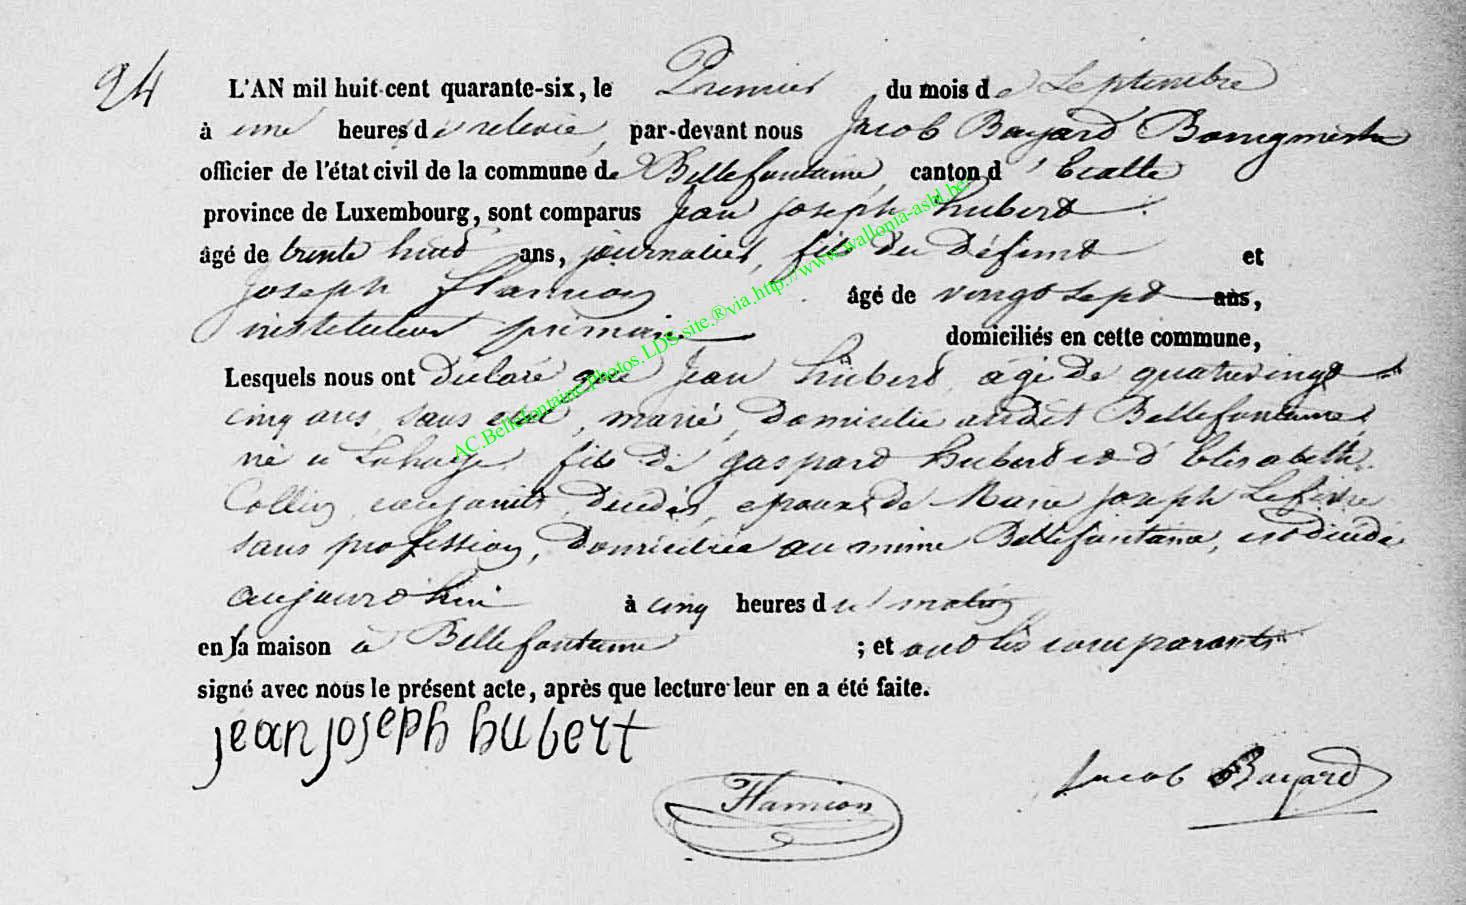 24
L'AN mil huit cent quarante-six, le Premier du mois de Septembre
à une heures de relevée, par-devant nous Jacob Bayard Bourgmestre
officier de l'état civil de la commune de Bellefontaine, canton d'Etalle
province de Luxembourg, sont comparus Jean Joseph hubert
âgé de trente huit ans, journalier, fils du défunt et
Joseph flamion âgé de vingt sept ans,
instituteur primaire domiciliés en cette commune,
Lesquels nous ont déclaré que Jean hubert, âgé de quatrevingt
cinq ans, sans état, marié, domicilié audit Bellefontaine,
né à Lahage, fils de gaspard hubert et d'Elisabeth
Collin, conjoints, décédés, epoux de Marie Joseph Lefevre
sans profession, domiciliée au même Bellefontaine, est décédé
aujourd'hui à cinq heures du matin
en sa maison à Bellefontaine ; et ont les comparants
signé avec nous le présent acte, après que lecture leur en a été faite.
jean joseph hubert
Flamion
Jacob Bayard
AC.Bellefontaine.Photos.LDS.site.®via.http://www.wallonia-asbl.be/